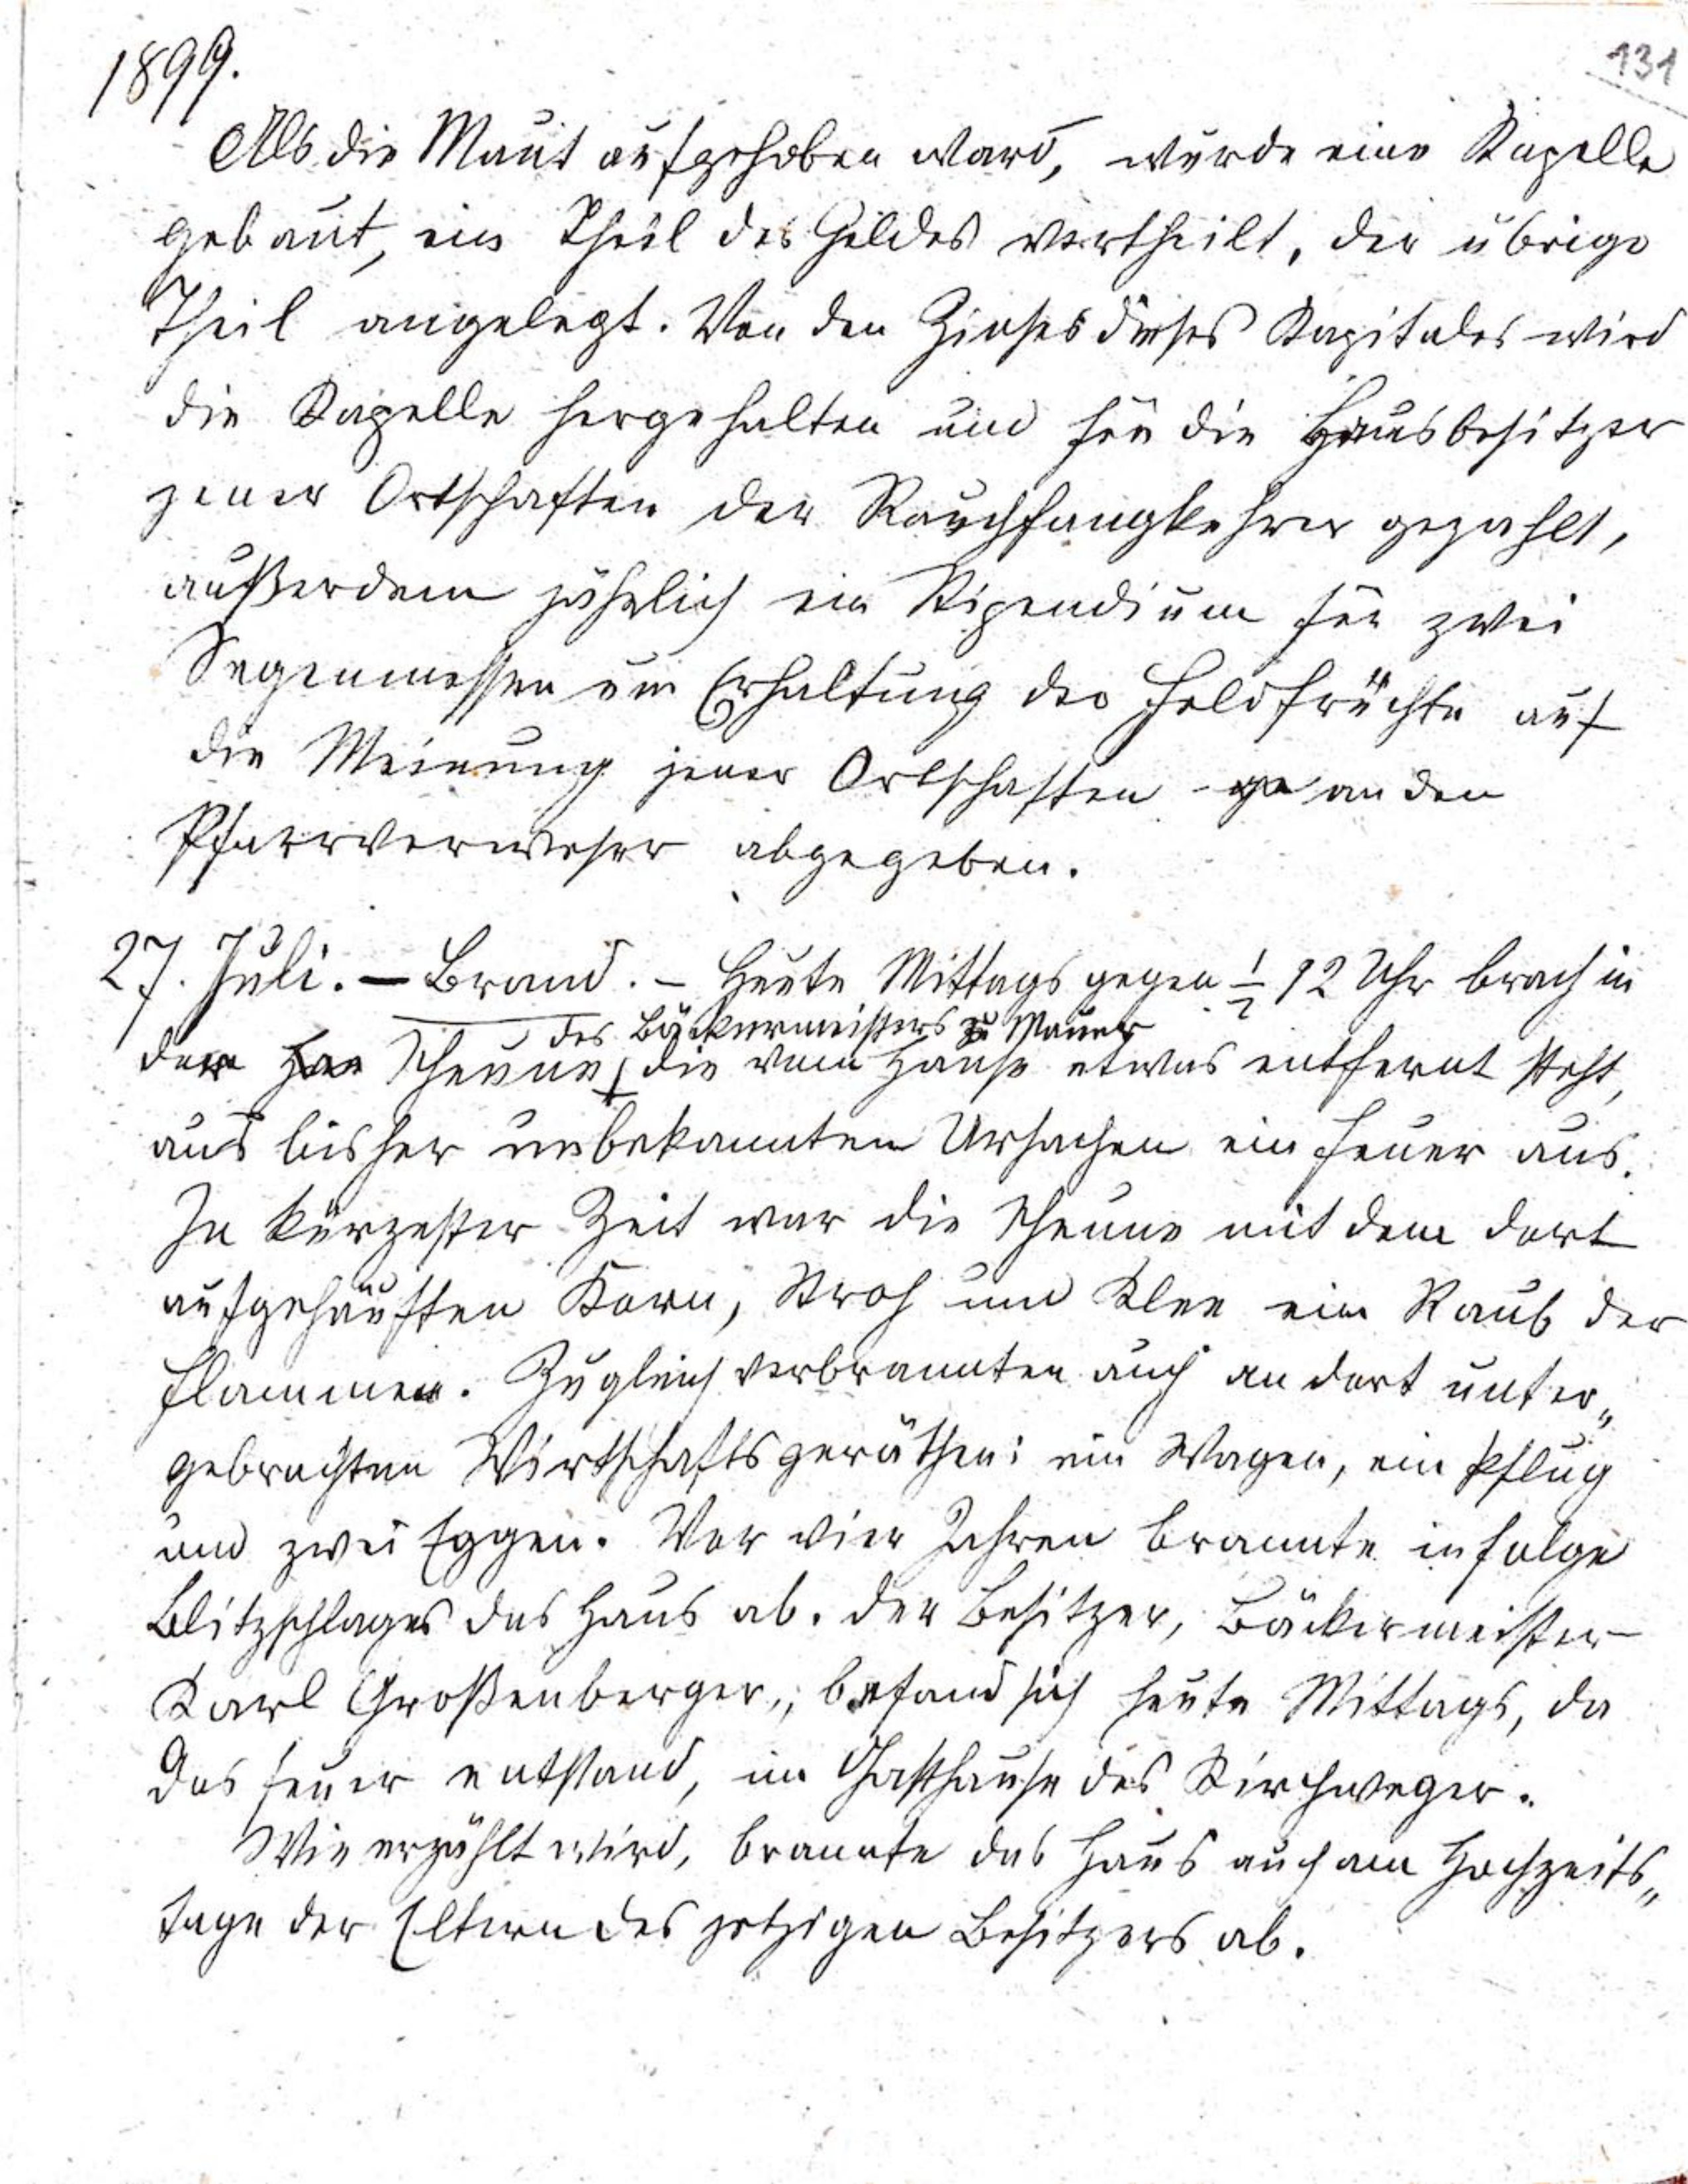 1899.
131
Als die Maut aufgehoben ward, wurde eine Kapelle
gebaut, ein Theil des Geldes vertheilt, der übrige
Theil angelegt. Von den Zinsen dieses Kapitales wird
die Kapelle hergehalten und für die Hausbesitzer
jener Ortschaften der Rauchfangkehrer gezahlt,
außerdem jährlich ein Stipendium für zwei
Segenmessen um Erhaltung der Feldfrüchte auf
die Meinung jener Ortschaften an den
Pfarrverweser abgegeben.
27. Juli. – Brand. – Heute Mittags gegen ½ 12 Uhr brach in
des Bäckermeisters zu Mauer
der Scheune, die vom Hause etwas entfernt steht,
aus bisher unbekannten Ursachen ein Feuer aus.
In kürzester Zeit war die Scheune mit dem dort
aufgehäuften Korn, Stroh und Klee ein Raub der
Flammen. Zugleich verbrannten auch an dort unter„
gebrachten Wirtschaftsgeräthen: ein Wagen, ein Pflug
und zwei Eggen. Vor vier Jahren brannte infolge
Blitzschlages das Haus ab. Der Besitzer, Bäckermeister
Karl Großenberger, befand sich heute Mittags, da
das Feuer entstand, im Gasthause des Kirchweger.
Wie erzählt wird, brannte das Haus auch am Hochzeits„
tage der Eltern des jetzigen Besitzers ab.